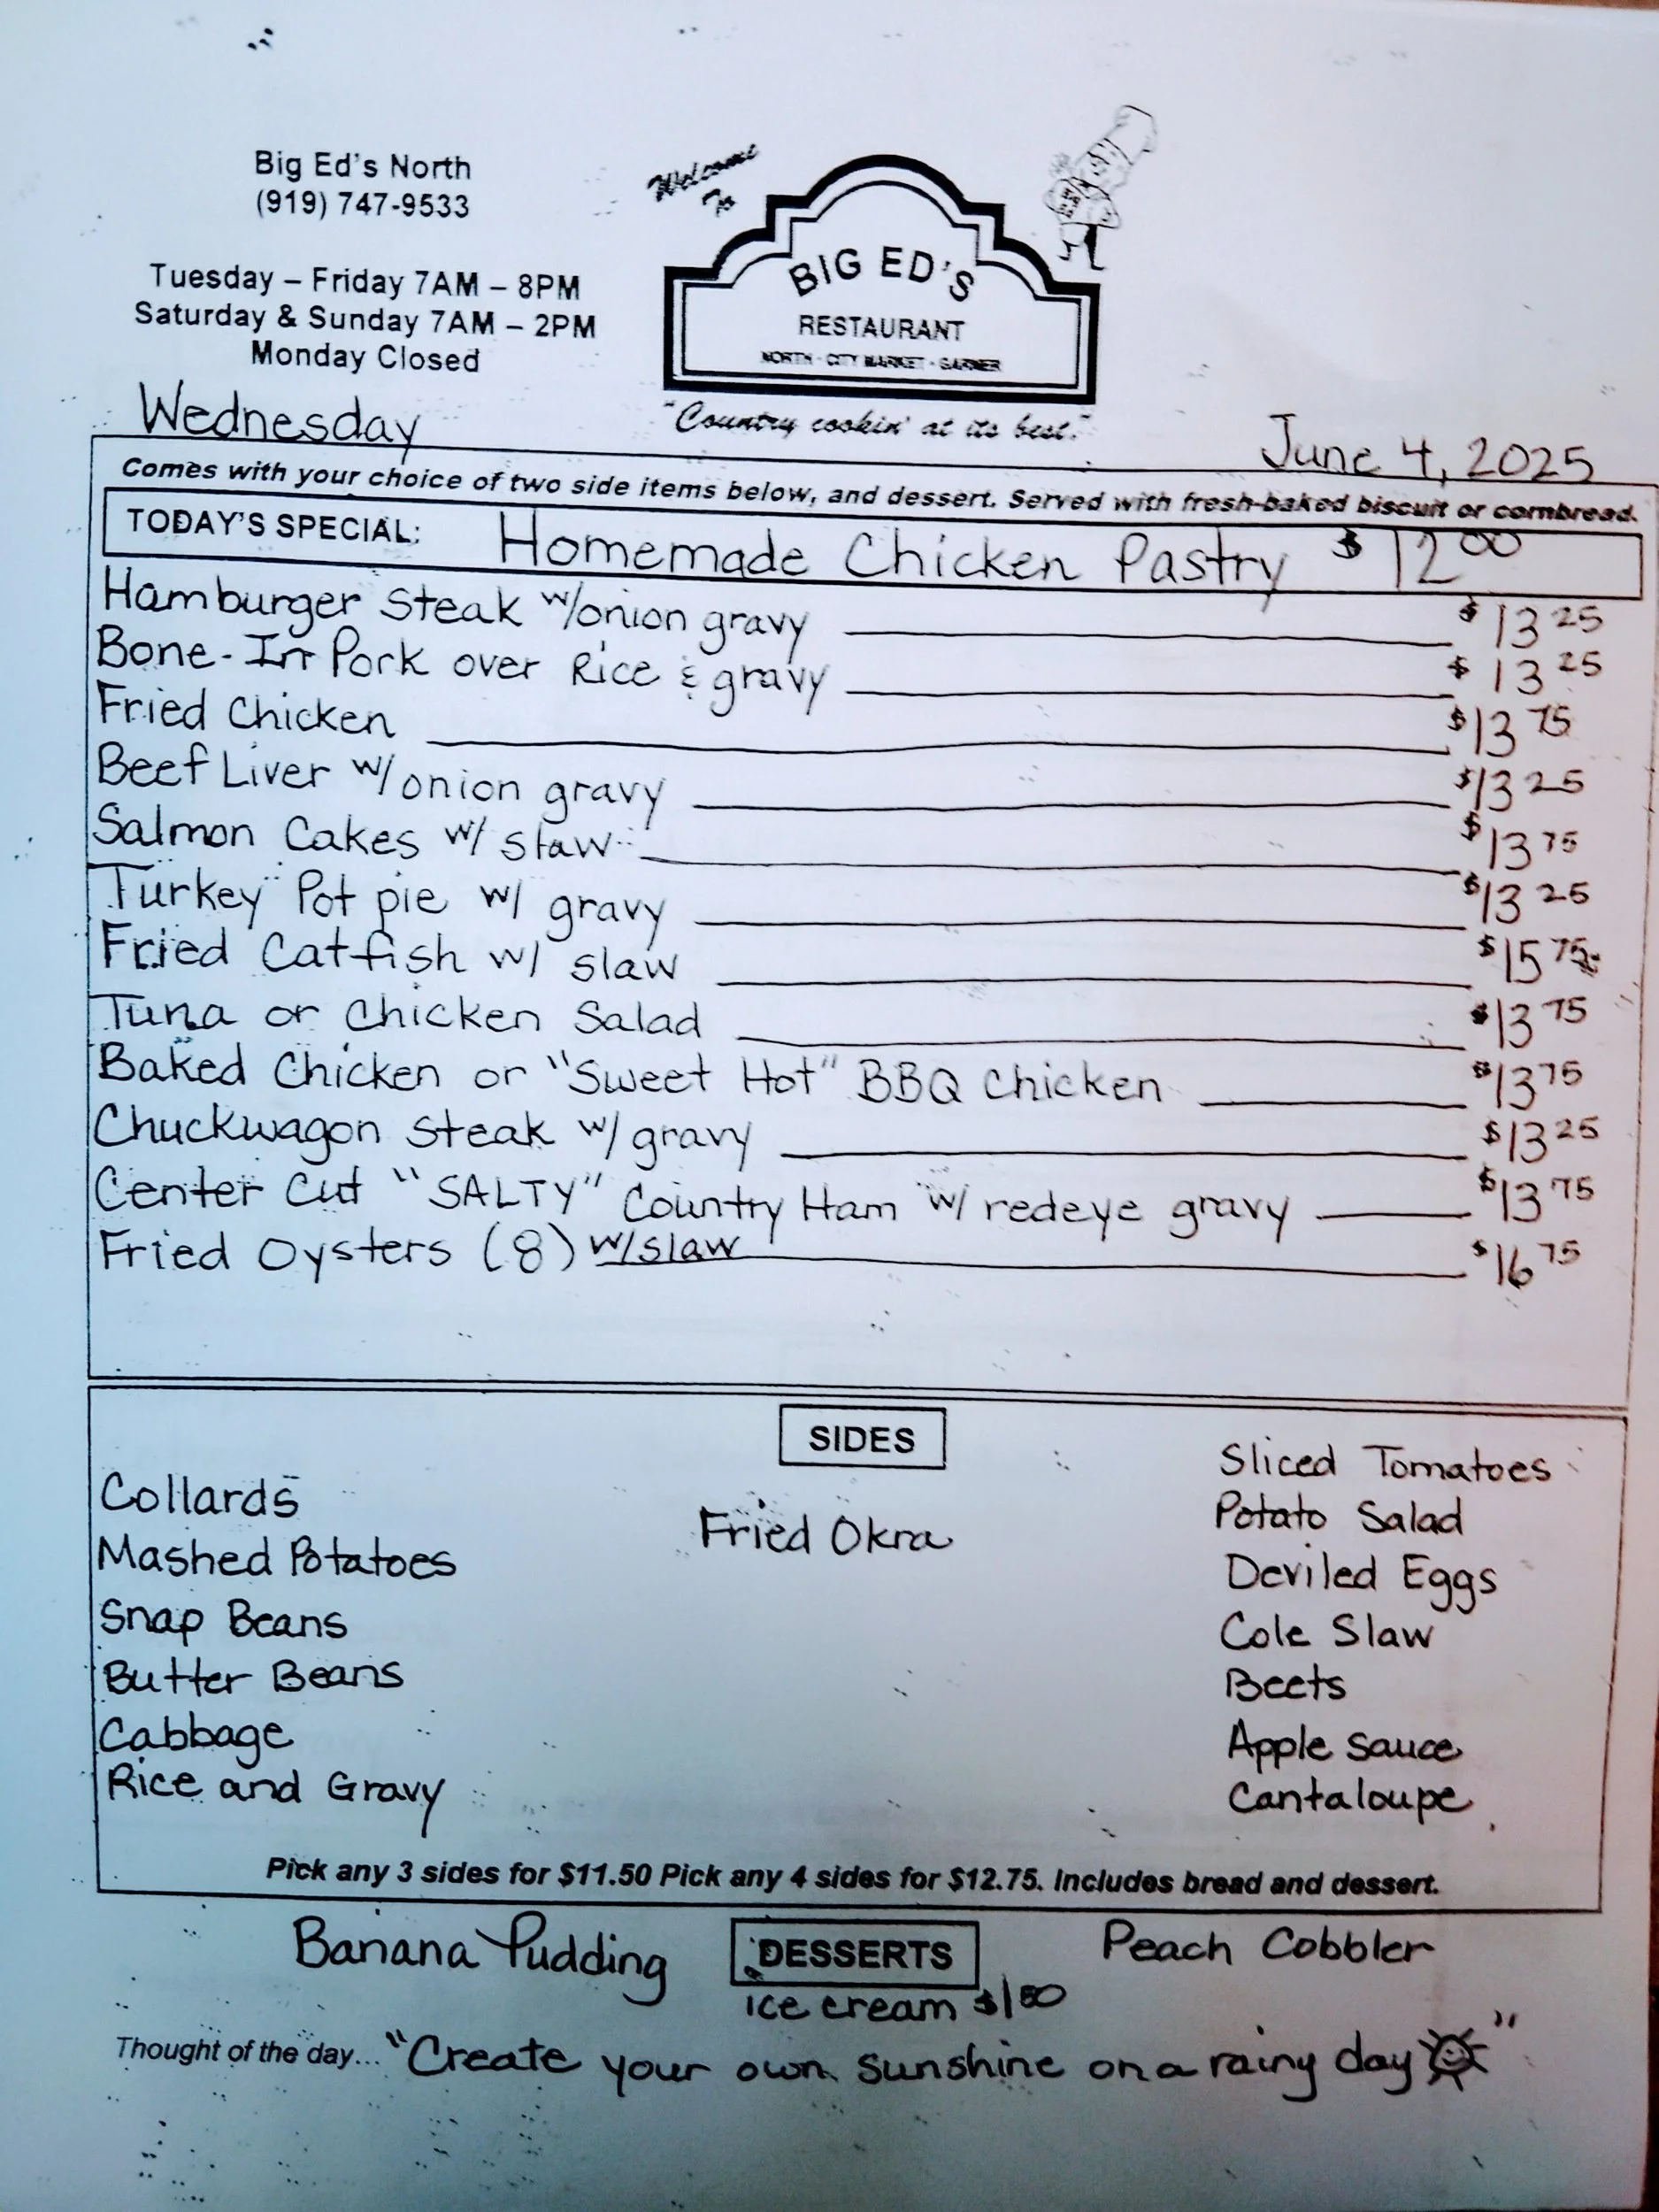 Big Ed's North
(919) 747-9533
Tuesday – Friday 7AM – 8PM
Saturday & Sunday 7AM – 2PM
Monday Closed
Welcome
To
BIG ED'S
RESTAURANT
NORTH · CITY MARKET · GARNER
"Country cookin' at its best."
Wednesday
June 4, 2025
Comes with your choice of two side items below, and dessert. Served with fresh-baked biscuit or cornbread.
TODAY'S SPECIAL: Homemade Chicken Pastry $12.00
Hamburger Steak w/onion gravy $13.25
Bone-In Pork over Rice & gravy $13.25
Fried Chicken $13.75
Beef Liver w/onion gravy $13.25
Salmon Cakes w/ slaw $13.75
Turkey Pot pie w/ gravy $13.25
Fried Catfish w/ slaw $15.75
Tuna or Chicken Salad $13.75
Baked Chicken or "Sweet Hot" BBQ Chicken $13.75
Chuckwagon Steak w/ gravy $13.25
Center Cut "SALTY" Country Ham w/ redeye gravy $13.75
Fried Oysters (8) w/slaw $16.75
SIDES
Collards
Mashed Potatoes
Snap Beans
Butter Beans
Cabbage
Rice and Gravy
Fried Okra
Sliced Tomatoes
Potato Salad
Deviled Eggs
Cole Slaw
Beets
Apple Sauce
Cantaloupe
Pick any 3 sides for $11.50 Pick any 4 sides for $12.75. Includes bread and dessert.
Banana Pudding
DESSERTS
Peach Cobbler
ice cream $1.50
Thought of the day... "Create your own sunshine on a rainy day"